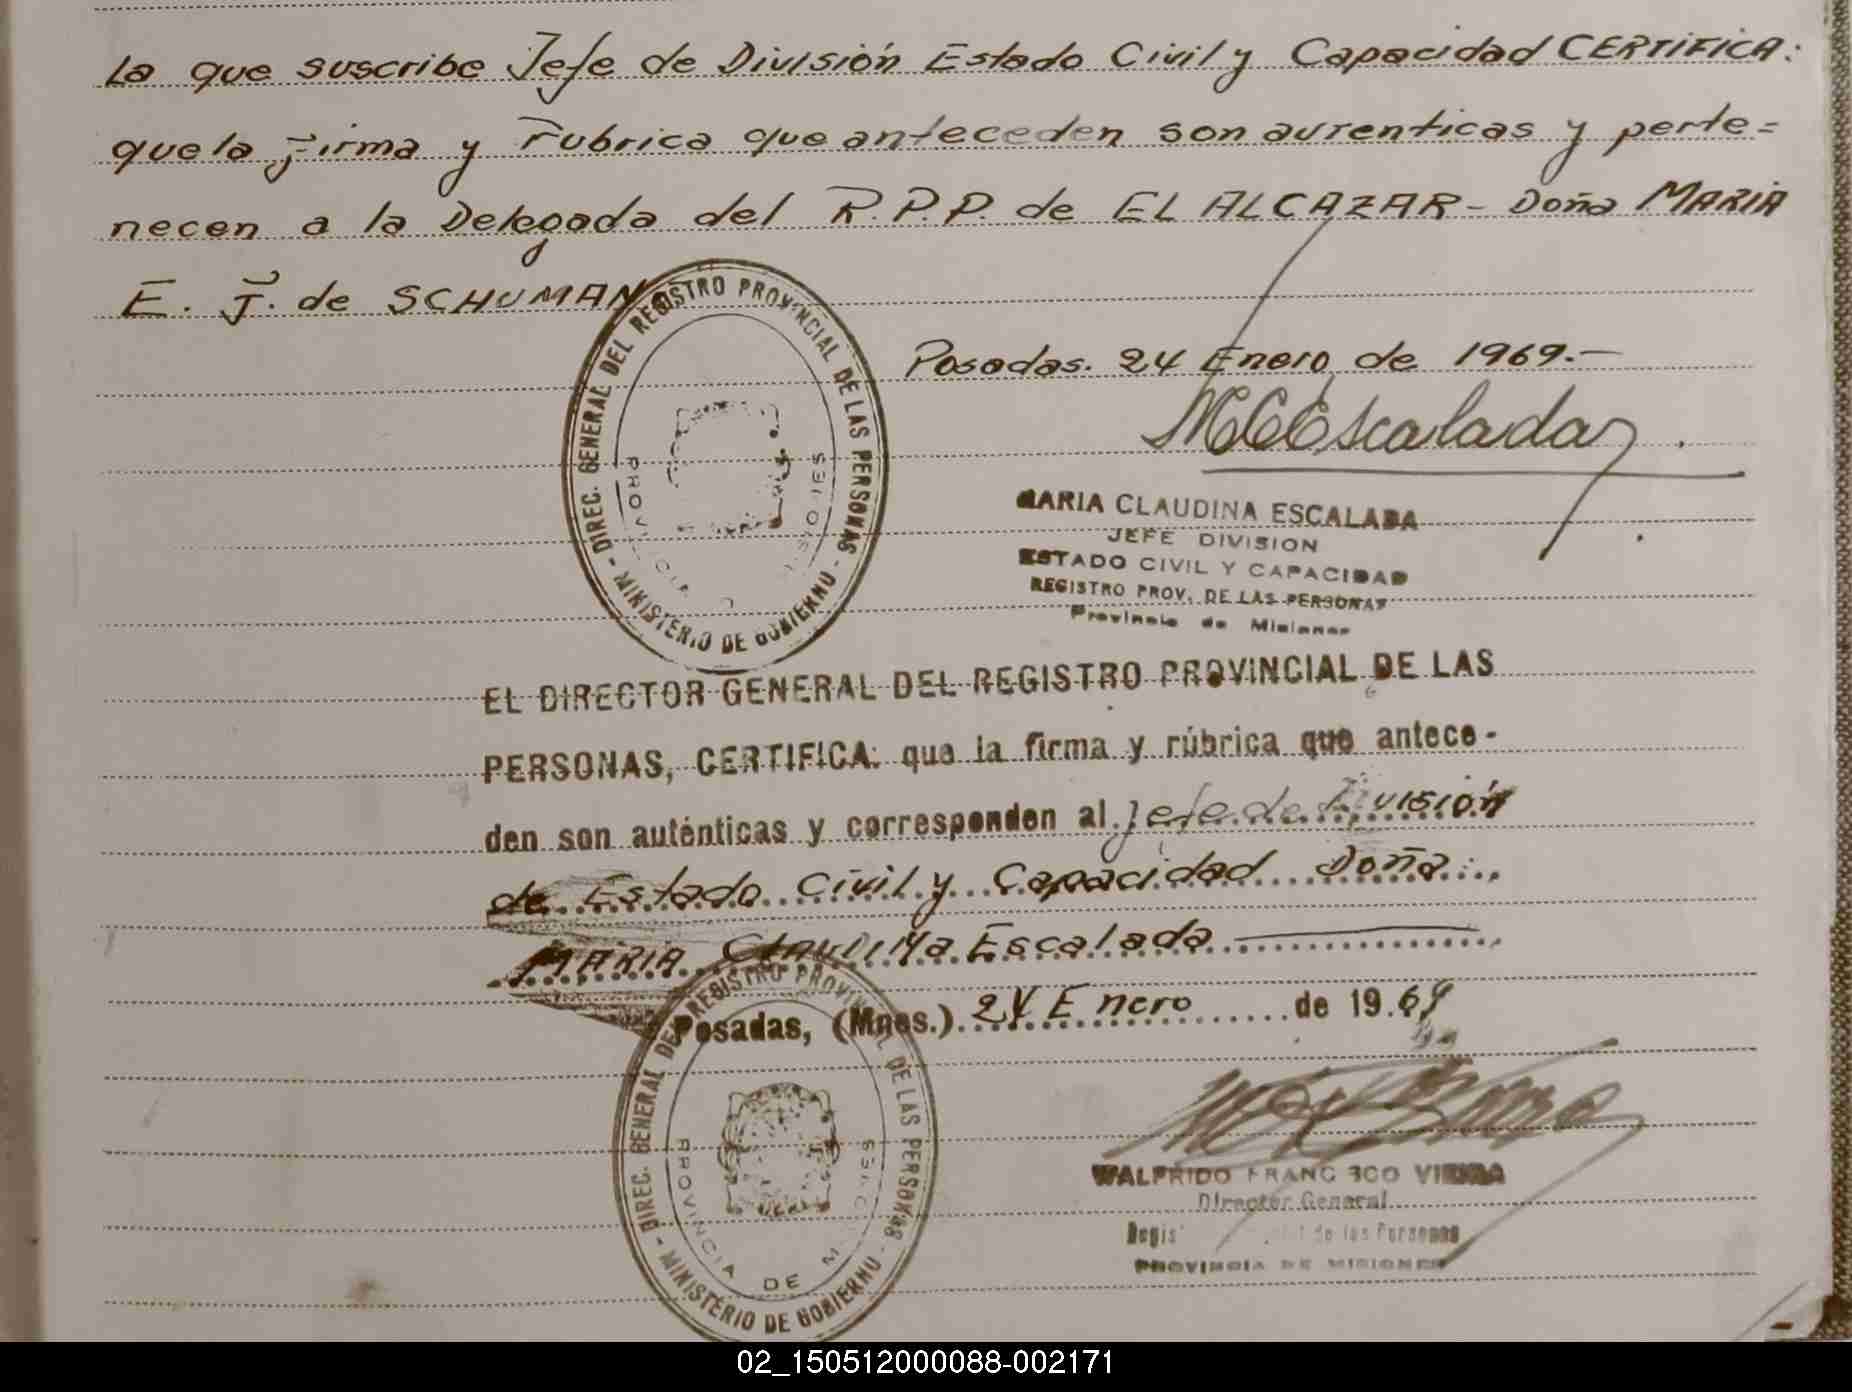 La que suscribe Jefe de División Estado Civil y Capacidad CERTIFICA:
que la Firma y Rubrica que anteceden son autenticas y perte=
necen a la Delegada del R.P.P. de EL ALCAZAR - Doña MARIA
E. J. de SCHUMAN
DIREC. GENERAL DEL REGISTRO PROVINCIAL DE LAS PERSONAS - MINISTERIO DE GOBIERNO -
PROVINCIA MISIONES
Posadas. 24 Enero de 1969.-
MCEscalada
MARIA CLAUDINA ESCALADA
JEFE DIVISION
ESTADO CIVIL Y CAPACIDAD
REGISTRO PROV. DE LAS PERSONAS
Provincia de Misiones
EL DIRECTOR GENERAL DEL REGISTRO PROVINCIAL DE LAS
PERSONAS, CERTIFICA: que la firma y rúbrica que antece-
den son auténticas y corresponden al Jefe de División
de Estado Civil y Capacidad Doña
MARIA Claudina Escalada
Posadas, (Mnes.) 24 Enero de 1969
DIREC. GENERAL DEL REGISTRO PROVINCIAL DE LAS PERSONAS - MINISTERIO DE GOBIERNO -
PROVINCIA DE MISIONES
WALFRIDO FRANCISCO VIERA
Director General
Regis de las Personas
PROVINCIA DE MISIONES
02_150512000088-002171